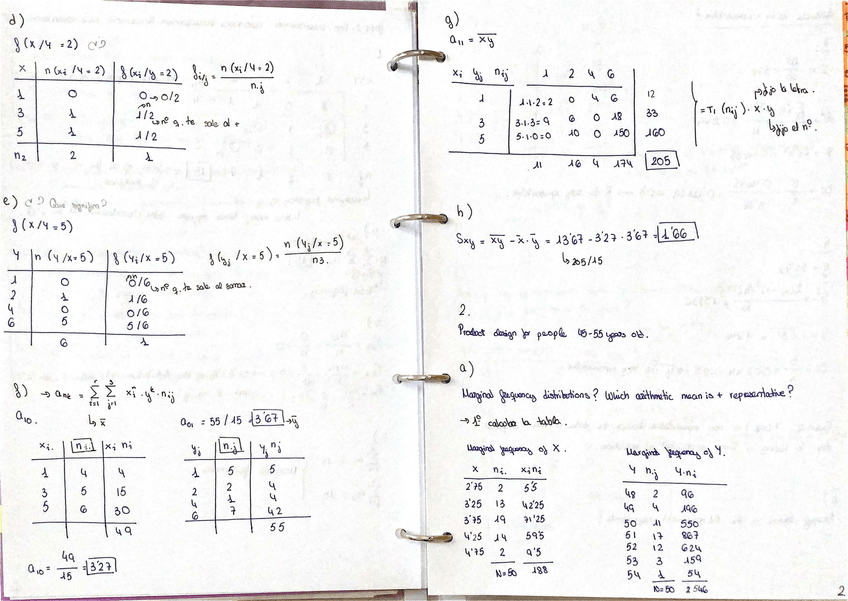 d)
f(x/y=2) c?
X n(xi/y=2) f(xi/y=2) fi/j = n(xi/y=2) / n.j
1 0 0→0/2
3 1 1/2 ↳nº q. te sale al +
5 1 1/2
n2 2 1
e) c? Que significa?
f(x/y=5)
Y n(y/x=5) f(yi/x=5) f(yj/x=5) = n(yj/x=5) / n3.
1 0 0/6 ↳nº q. te sale al sumar.
2 1 1/6
4 0 0/6
6 5 5/6
6 1
f) → ank = Σ i=1 r Σ j=1 3 xi^n · y^k · nij
a10. ↳ x̄
xi. ni. xi ni
1 4 4
3 5 15
5 6 30
49
a10 = 49/15 = 3'27
a01 = 55/15 = 3'67 → ȳ
yj n.j yj nj
1 5 5
2 2 4
4 1 4
6 7 42
55
g)
a11 = xy
xi yj nij 1 2 4 6
1 1·1·2=2 0 4 6 12
3 3·1·3=9 6 0 18 33
5 5·1·0=0 10 0 150 160
11 16 4 174 205
= T1 (nij) · x · y
↳fijo la letra.
↳fijo el nº.
h)
Sxy = xy - x̄·ȳ = 13'67 - 3'27 · 3'67 = 1'66
↳ 205/15
2.
Product design for people 45-55 years old.
a)
Marginal frequency distributions? Which arithmetic mean is + representative?
→ 1º calcular la tabla.
Marginal frequency of X.
X ni. xi ni
2'75 2 5'5
3'25 13 42'25
3'75 19 71'25
4'25 14 59'5
4'75 2 9'5
N=50 188
Marginal frequency of Y.
Y n.j Y·nj
48 2 96
49 4 196
50 11 550
51 17 867
52 12 624
53 3 159
54 1 54
N=50 2546
2